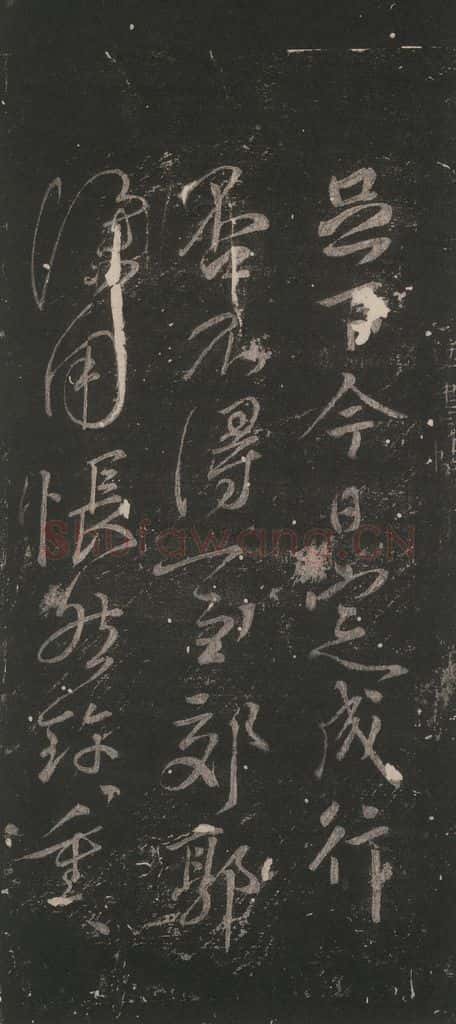 足下今日定成行
否不得一至郊郭
深用悵然珍重
Shufawang.CN